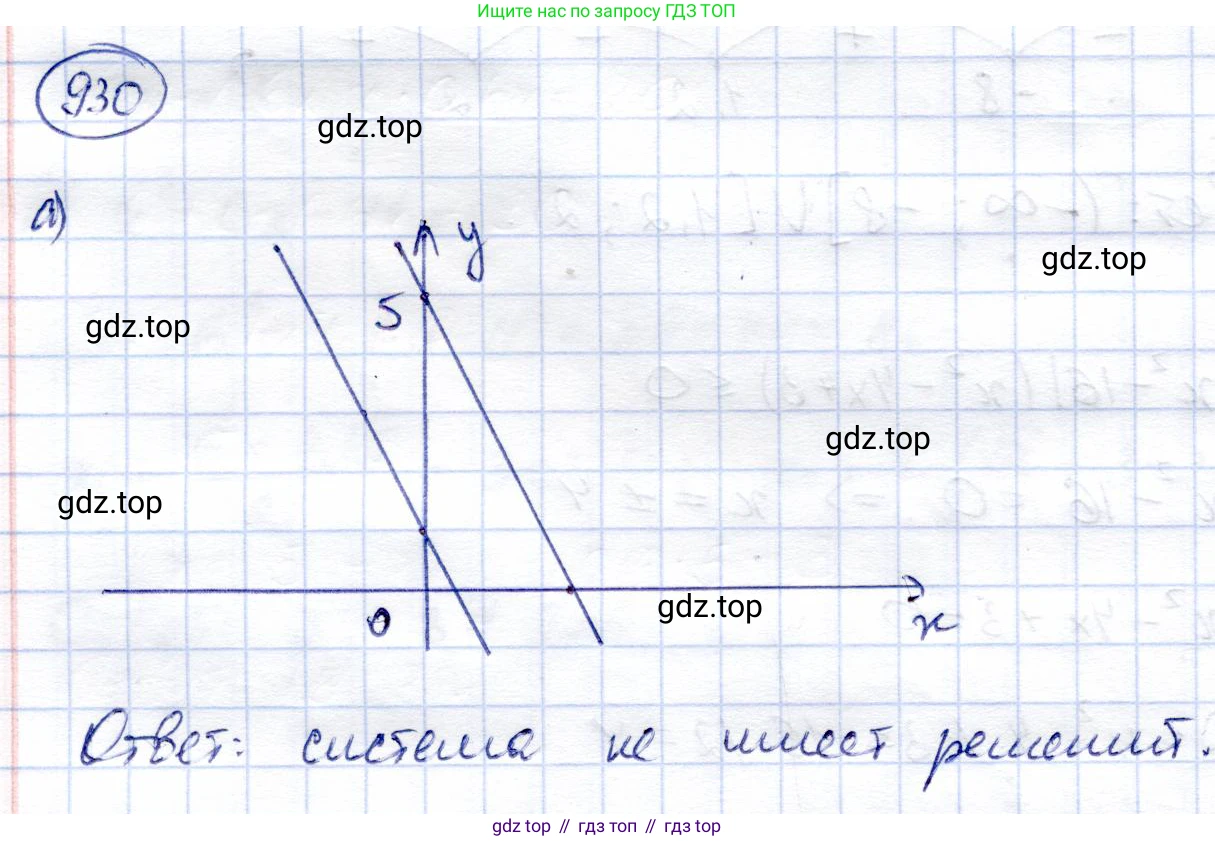 Ищите нас по запросу ГДЗ ТОП
930
gdz.top
а)
y
gdz.top
5
gdz.top
gdz.top
gdz.top
0
gdz.top
x
Ответ: система не имеет решений.
gdz top // гдз топ // гдз top